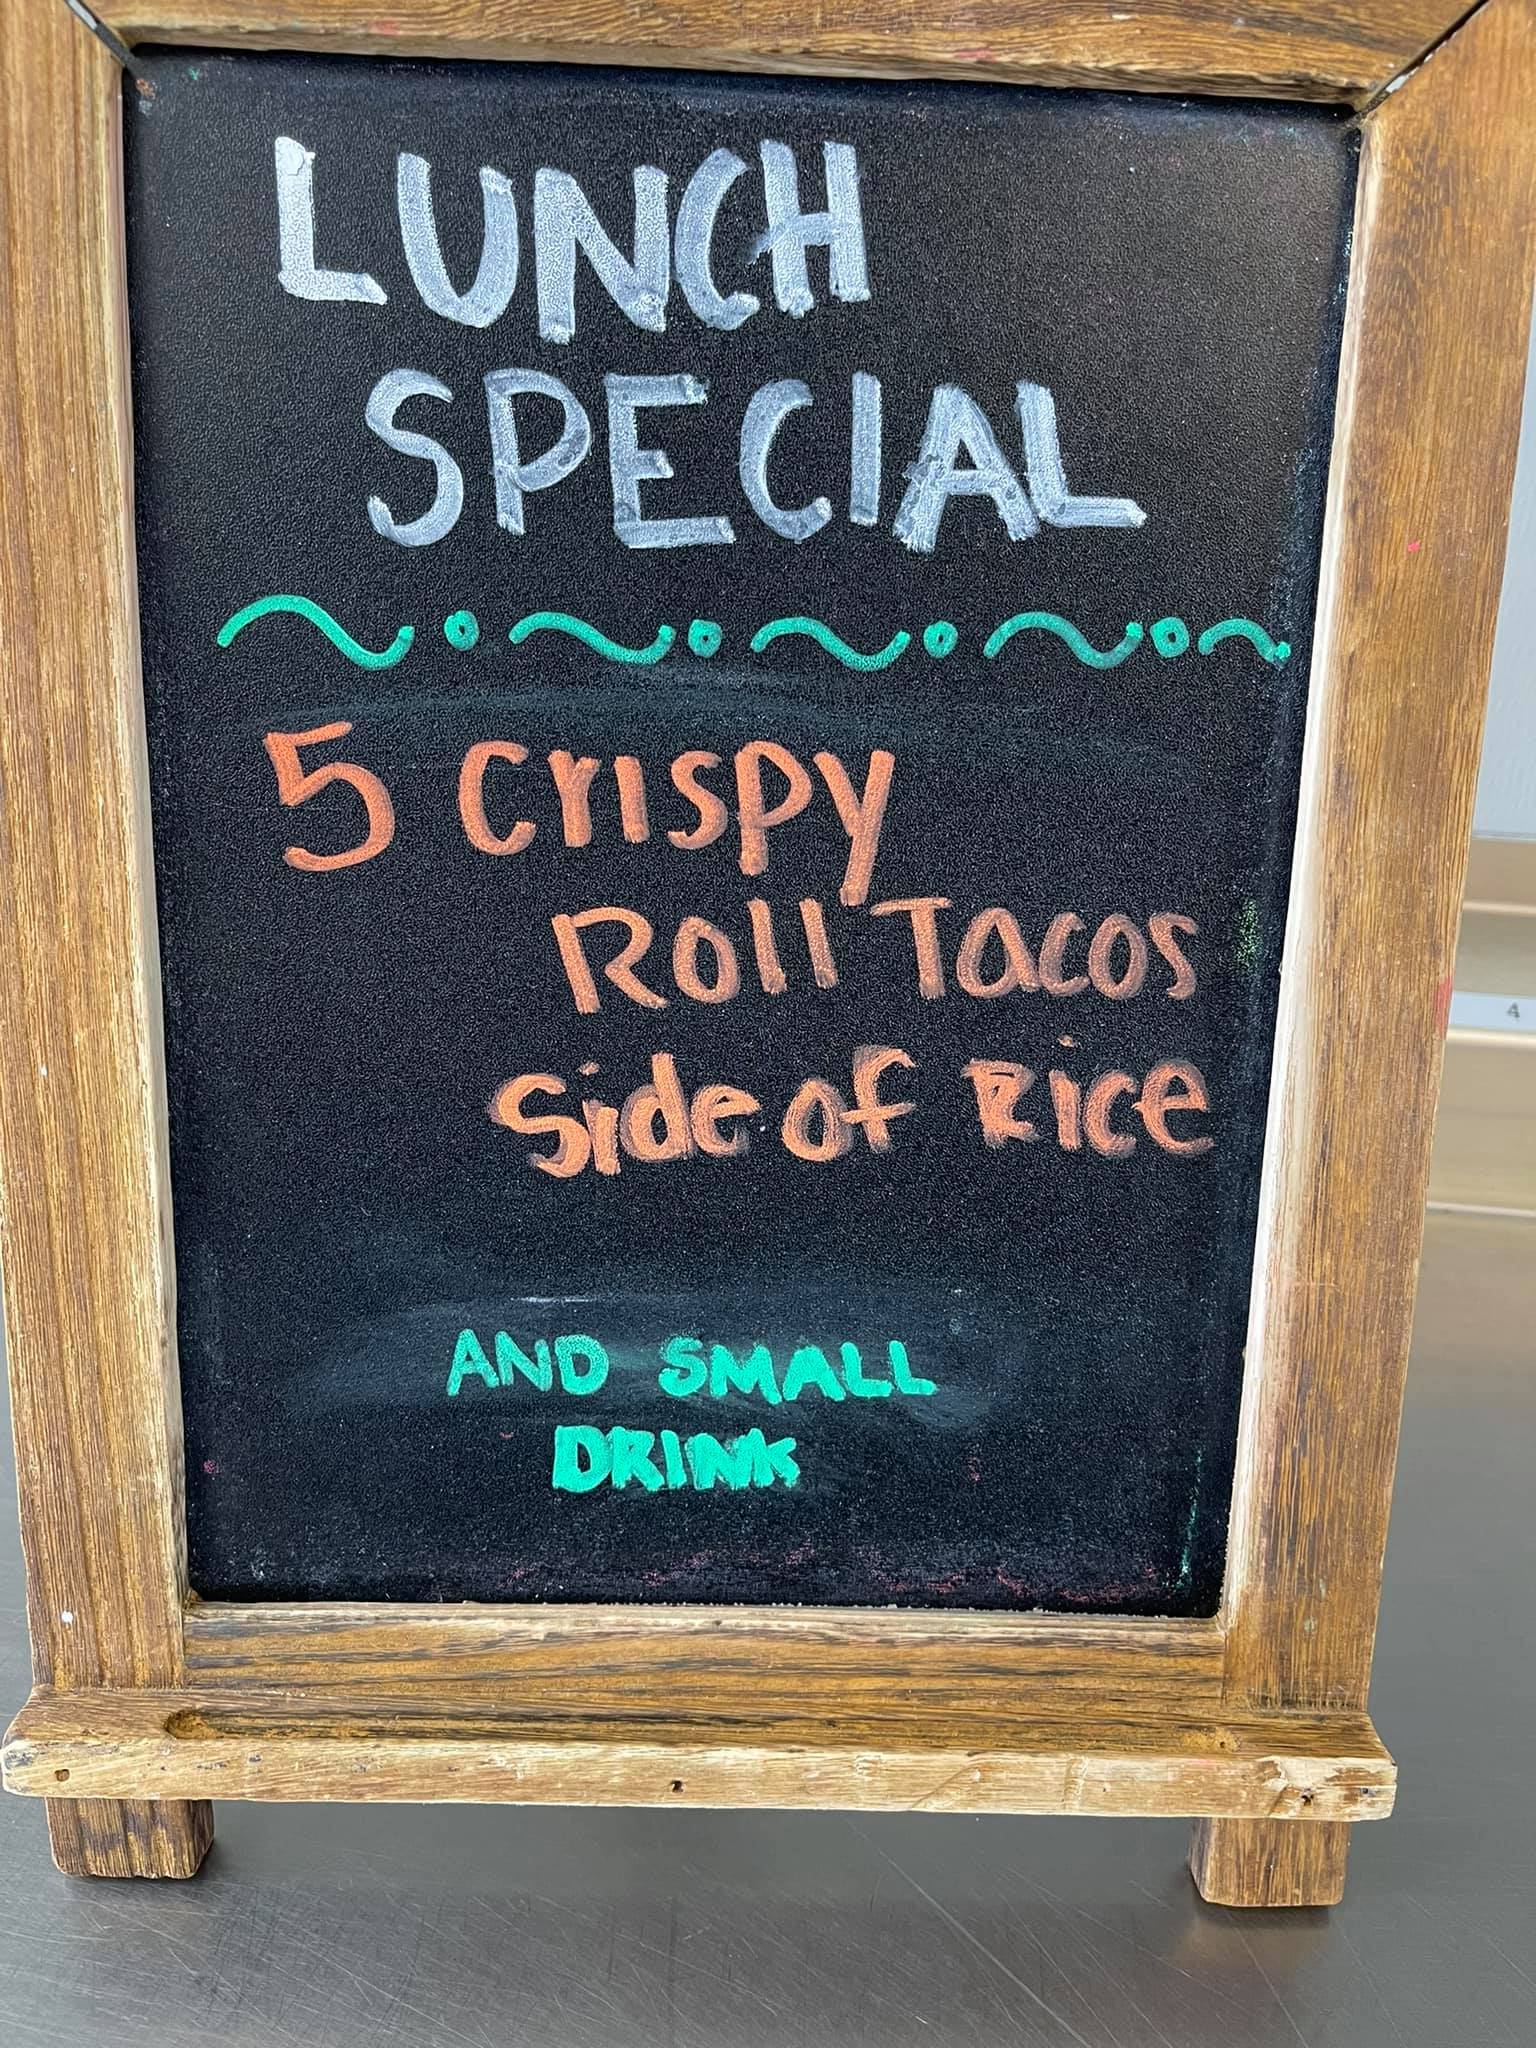 LUNCH
SPECIAL
5 Crispy
Roll Tacos
Side of Rice
AND SMALL
DRINK
4